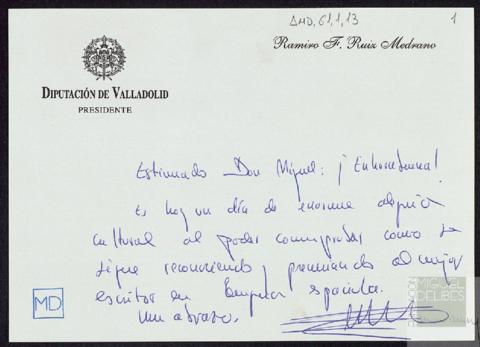 AMD, 61, 1, 13
1
Ramiro F. Ruiz Medrano
DIPUTACIÓN DE VALLADOLID
PRESIDENTE
Estimado Don Miguel: ¡Enhorabuena!
Es hoy un día de enorme alegría
cultural al poder comprobar como se
sigue reconociendo y premiando al mejor
escritor en lengua española.
Un abrazo.
MD
FUNDACIÓN
MIGUEL
DELIBES